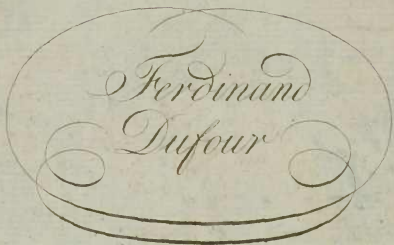 Ferdinand
Dufour